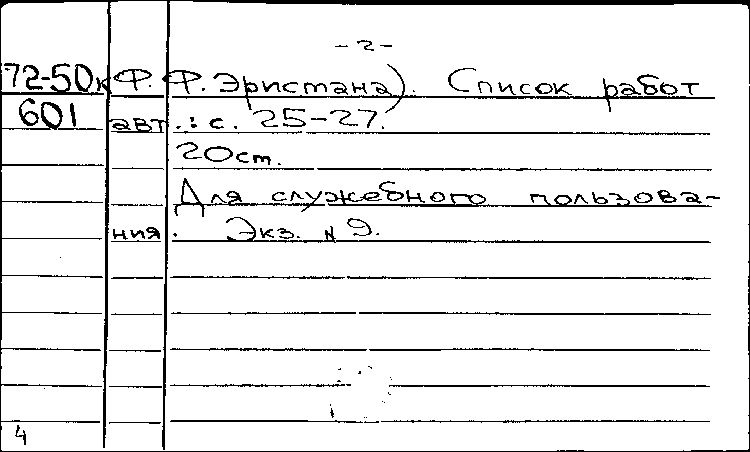 - 2 -
72-50к (Ф. Ф. Эристана). Список работ
601 авт.: с. 25-27.
20 см.
Для служебного пользова-
ния. Экз. N 9.
4